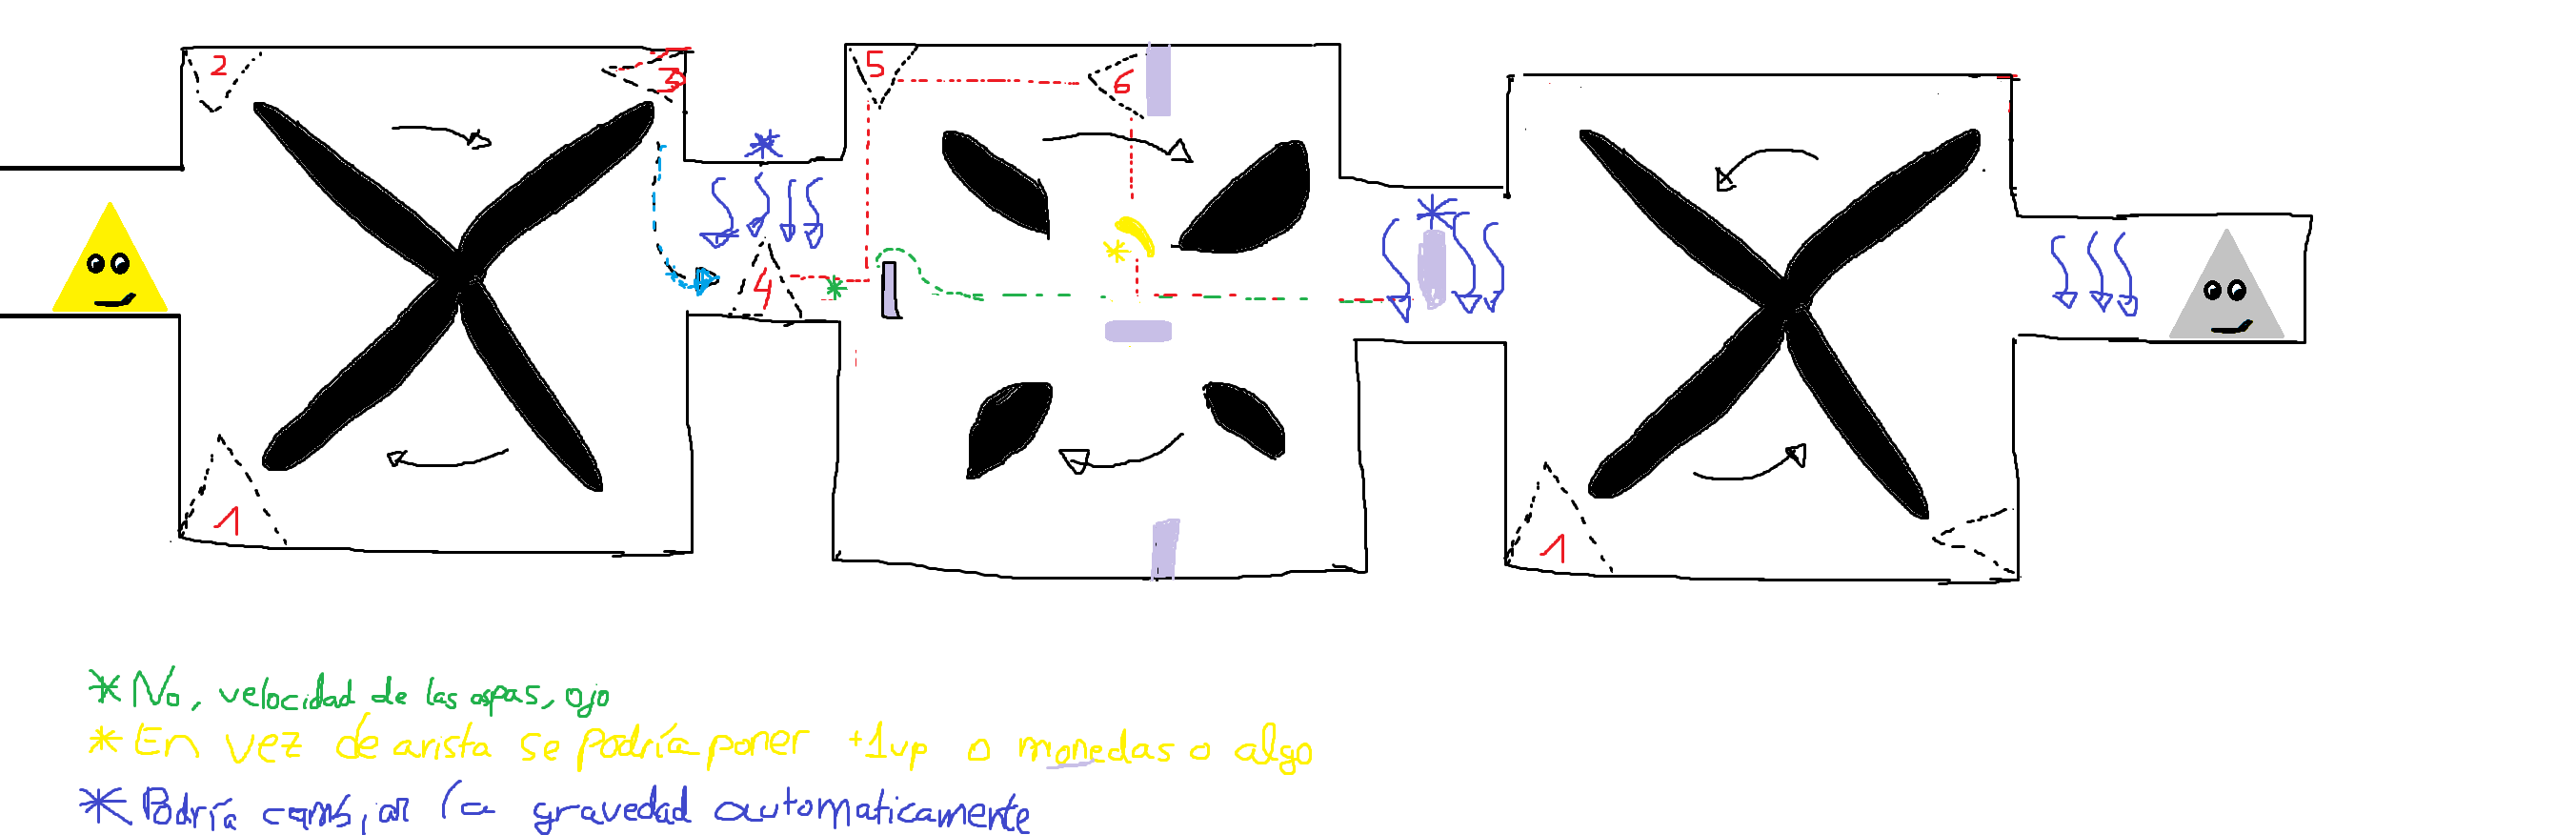 2
3
5
6
4
1
1
* No, velocidad de las aspas, ojo
* En vez de arista se podría poner +1up o monedas o algo
* Podría cambiar la gravedad automaticamente